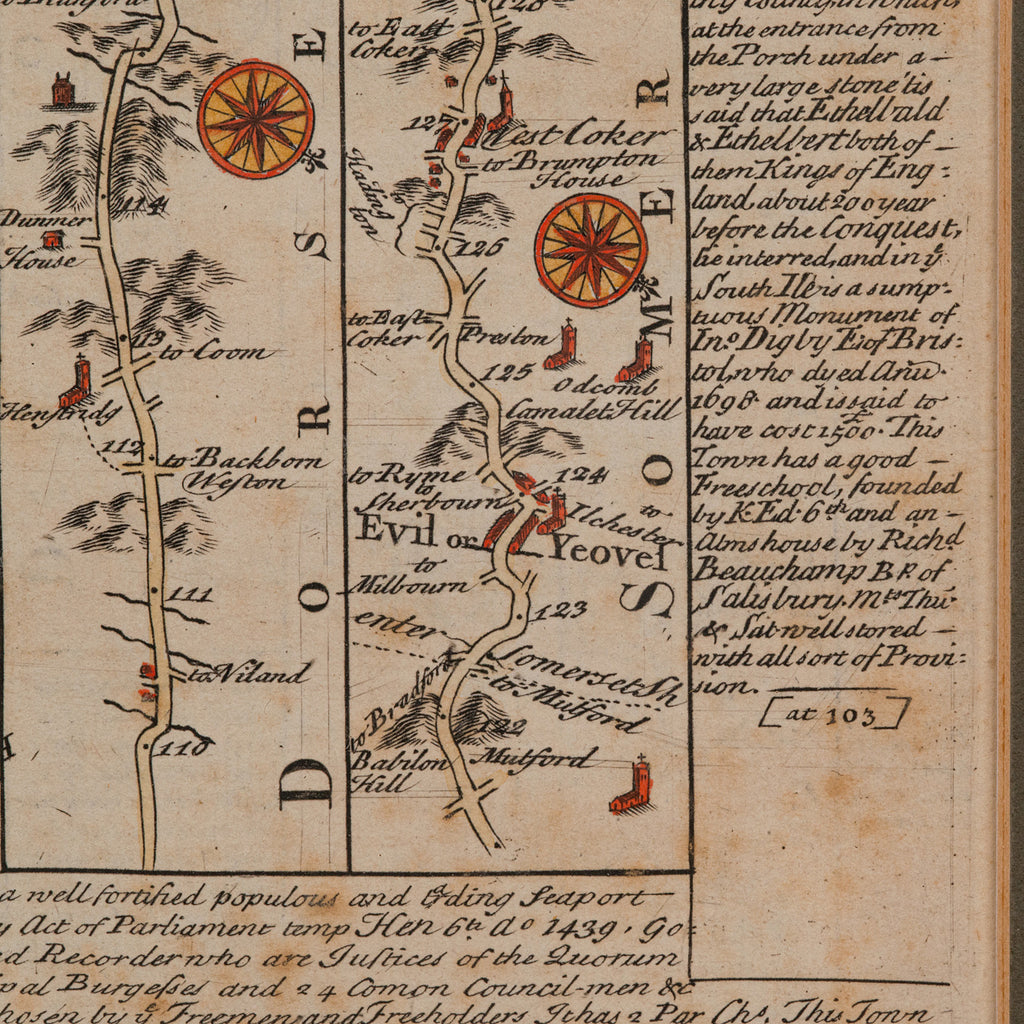 114
Dunmer
House
113
to Coom
Henstridg
112
to Backborn
Weston
111
to Niland
110
DORSE
128
to East
Coker
127
West Coker
to Brumpton
House
Hading
ton
126
to East
Coker
Preston
125
Odcomb
Camalet Hill
124
to Ryme
to
Sherbourn
to
Ilchester
Evil or Yeovel
to
Milbourn
123
enter Somerset Sh
to Bradford
to Mutford
122
Babilon
Hill
Mutford
SOMER
at the entrance from
the Porch under a
very large stone 'tis
said that Ethelbald
& Ethelbert both of
them Kings of Eng:
land, about 200 year
before the Conquest,
lie interred, and in yᵉ
South Ile is a sump:
tuous Monument of
Inº Digby E. of Bris:
tol, who dyed Anº
1698 and is said to
have cost 1500£. This
Town has a good
Freeschool, founded
by K. Ed. 6th and an
Almshouse by Richd
Beauchamp Bp. of
Salisbury. Mts Thu
& Sat well stored
with all sort of Provi:
sion.
[at 103]
a well fortified populous and trading Seaport
Act of Parliament temp Hen 6th Aº 1439. Go:
Recorder who are Justices of the Quorum
pal Burgesses and 24 Comon Council-men &c
hosen by yᵉ Freemen and Freeholders It has 2 Par Chs. This Town